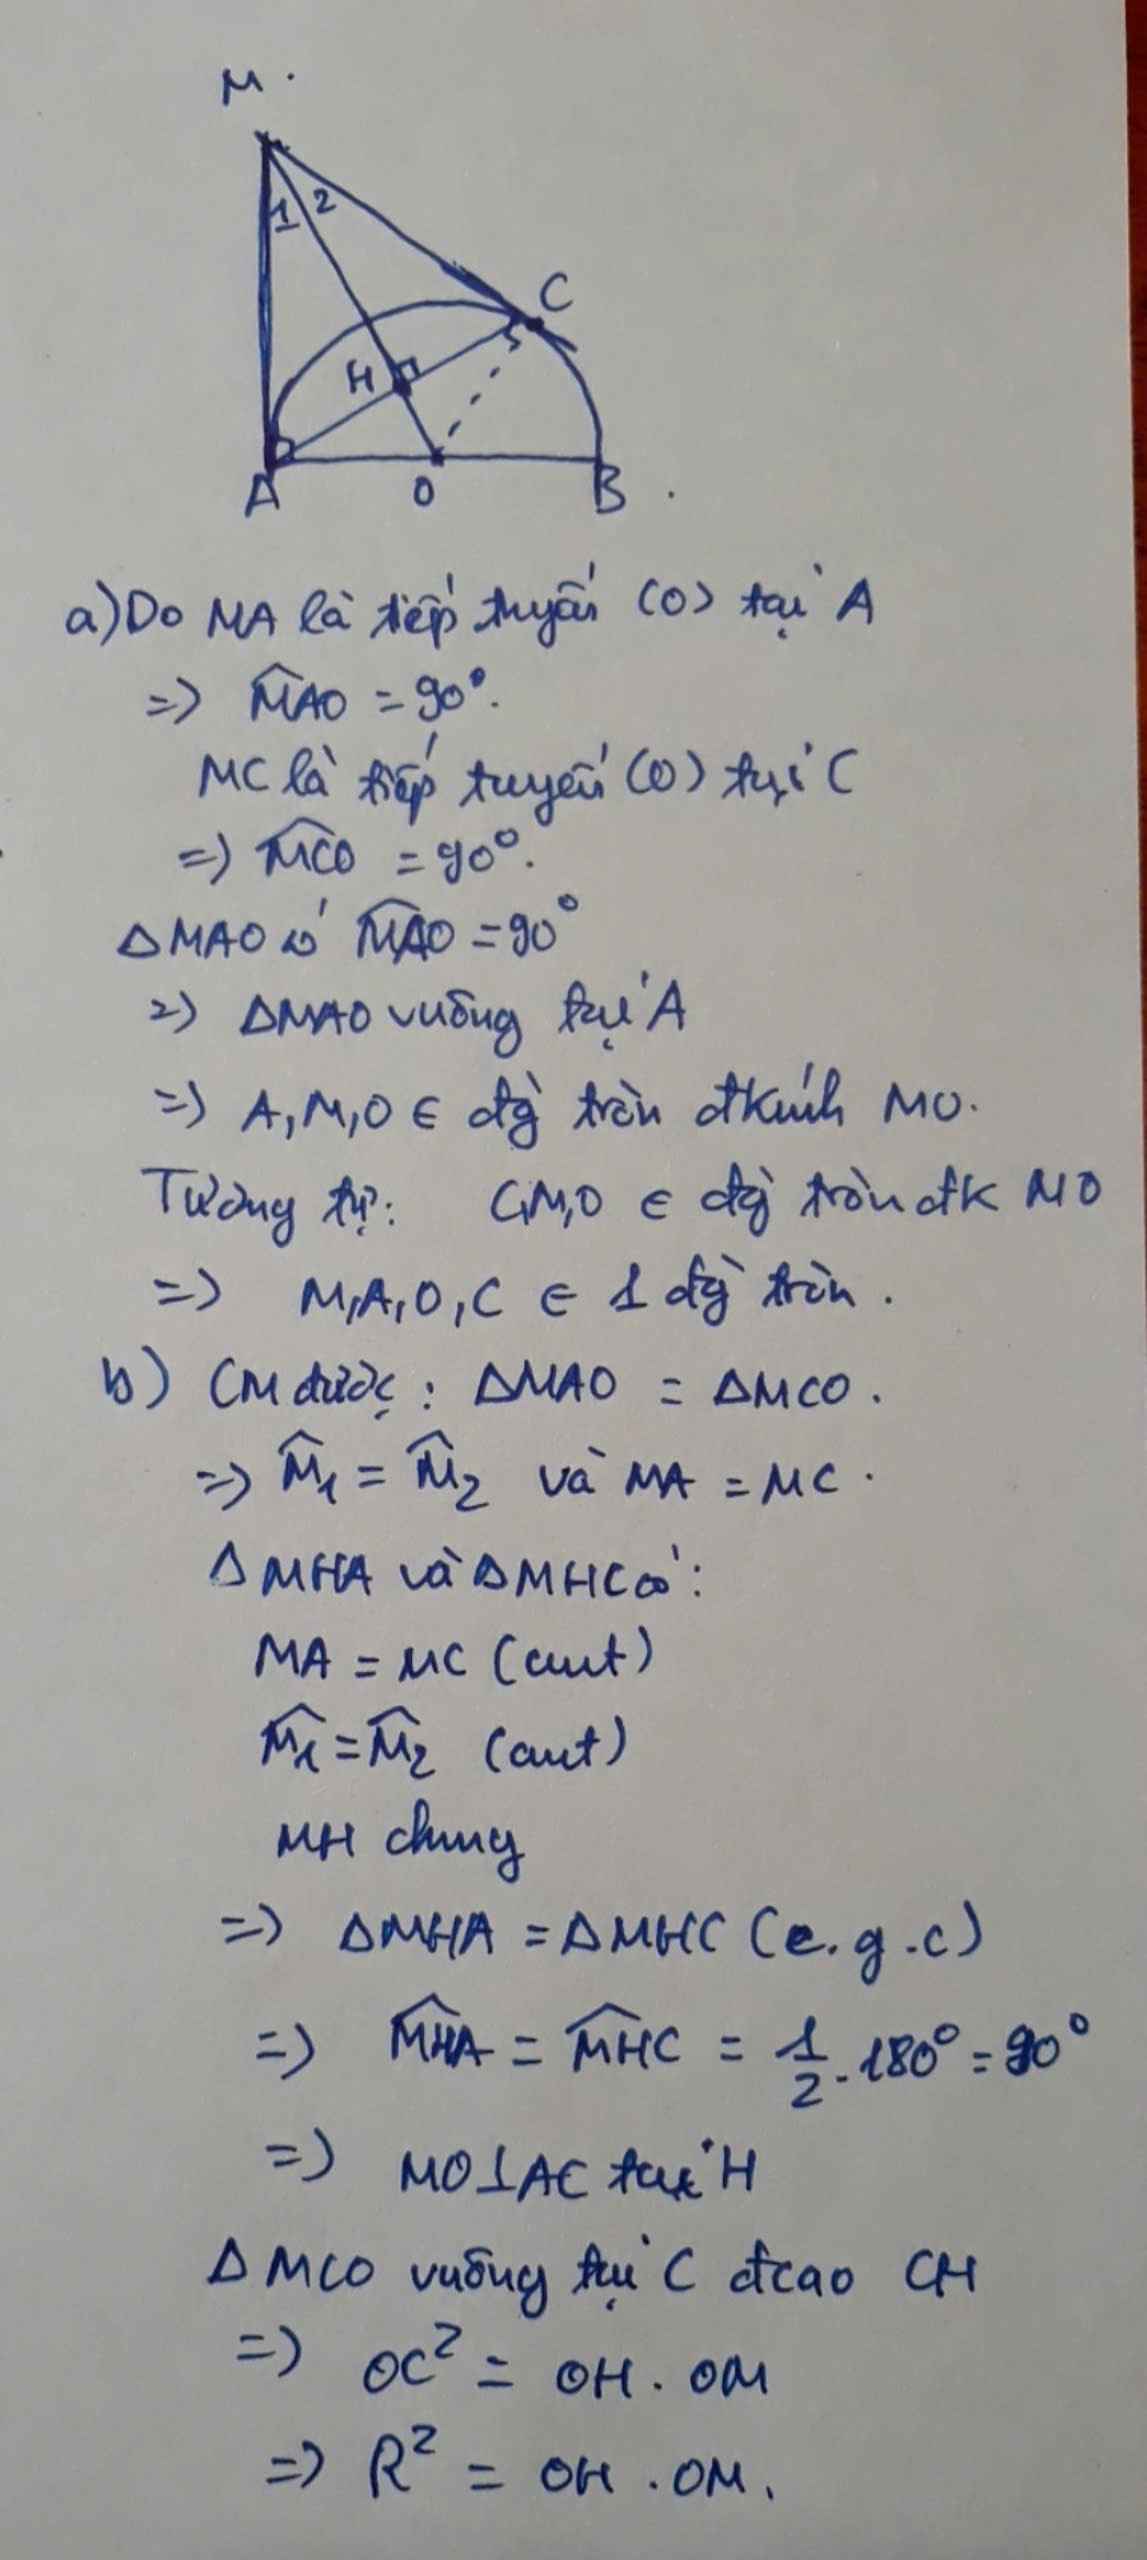 M
1 2
C
H
A O B
a) Do MA là tiếp tuyến (O) tại A
=> M̂AO = 90°.
MC là tiếp tuyến (O) tại C
=> M̂CO = 90°.
ΔMAO có M̂AO = 90°
=> ΔMAO vuông tại A
=> A, M, O ∈ đg tròn đkính MO.
Tương tự: C, M, O ∈ đg tròn đk MO
=> M, A, O, C ∈ 1 đg tròn.
b) CM được: ΔMAO = ΔMCO.
=> M̂₁ = M̂₂ và MA = MC.
ΔMHA và ΔMHC có:
MA = MC (cmt)
M̂₁ = M̂₂ (cmt)
MH chung
=> ΔMHA = ΔMHC (c.g.c)
=> M̂HA = M̂HC = 1/2 . 180° = 90°
=> MO⊥AC tại H
ΔMCO vuông tại C đcao CH
=> OC² = OH . OM
=> R² = OH . OM.